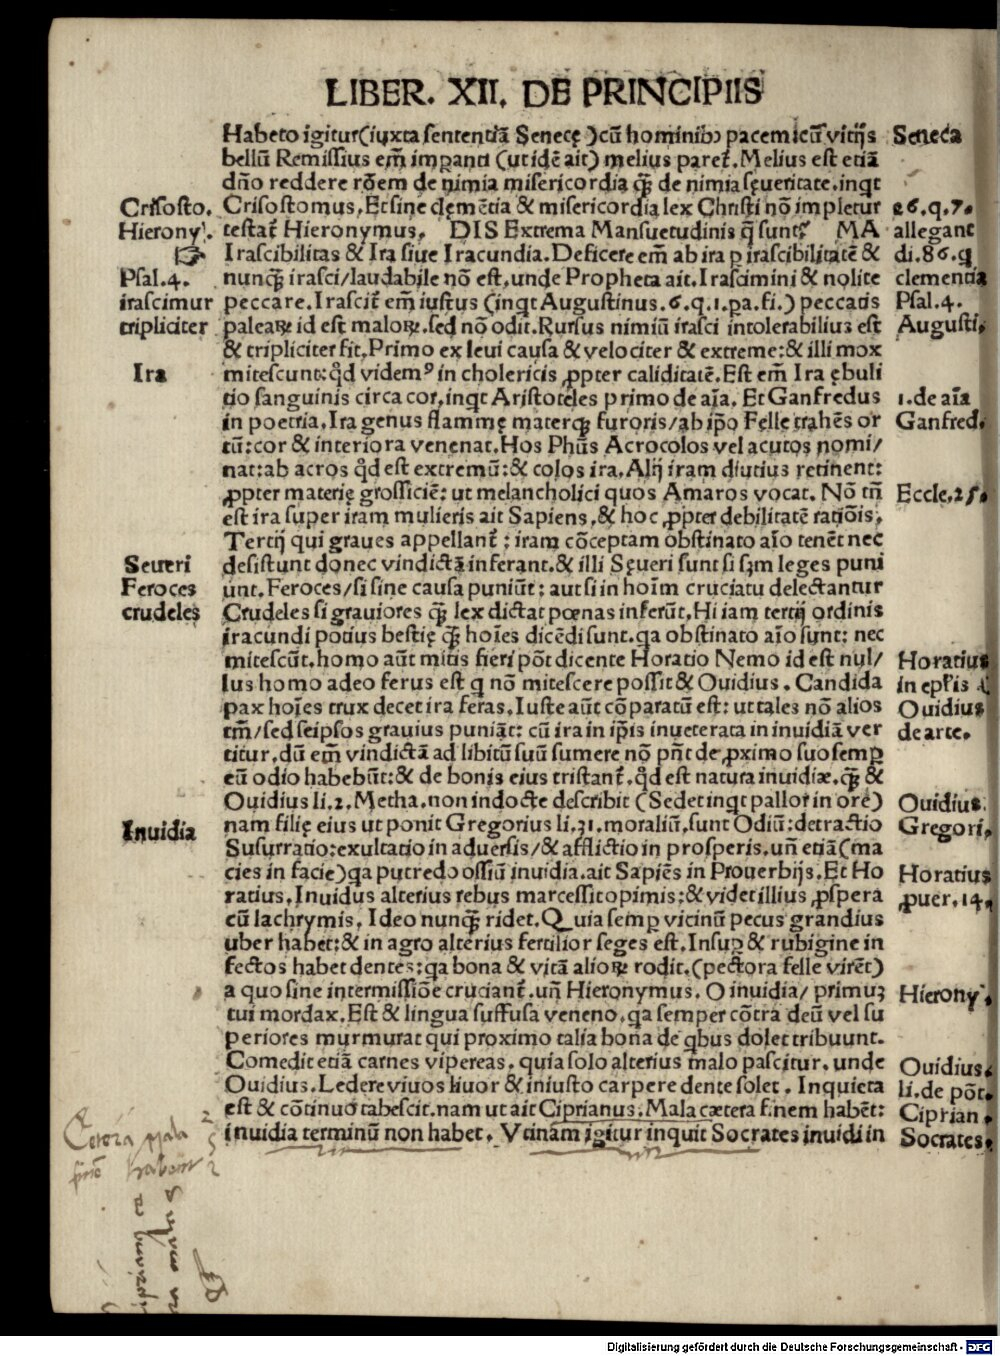 LIBER. XII. DE PRINCIPIIS
Habeto igitur(iuxta sententiā Senecę )cū hominibꝰ pacem:cū vitijs
bellū Remissius em̄ imꝑanti (ut idē ait) melius paret̄. Melius est etiā
dño reddere rōem de nimia misericordia q̄ꝫ de nimia sęueritate.inqt
Crisostomus. Et sine clemētia & misericordia lex Christi nō impletur
testat̄ Hieronymus. DIS Extrema Mansuetudinis q̄ sunt? MA
Irascibilitas & Ira siue Iracundia. Deficere em̄ ab ira ꝑ irascibilitatē &
nunq̄ꝫ irasci/laudabile nō est, unde Propheta ait. Irascimini & nolite
peccare. Irascit̄ em̄ iustus (inqt Augustinus .6.q.1.pa.fi.) peccatis
paleaꝝ id est maloꝝ.sed nō odit. Rursus nimiū irasci intolerabilius est
& tripliciter fit. Primo ex leui causa & velociter & extreme:& illi mox
mitescunt:qd̄ videmꝰ in cholericis ꝓpter caliditatē. Est em̄ Ira ębuli
tio sanguinis circa cor, inqt Aristoteles primo de aīa. Et Ganfredus
in poetria. Ira genus flammę materq̄ꝫ furoris/ab ip̄o Felle trahēs or
tū:cor & interiora venenat. Hos Phūs Acrocolos vel acutos nomi/
nat:ab acros qd̄ est extremū:& colos ira. Alij iram diutius retinent:
ꝓpter materię grossiciē: ut melancholici quos Amaros vocat. Nō tn̄
est ira super iram mulieris ait Sapiens, & hoc ꝓpter debilitatē ratiōis.
Tertij qui graues appellant̄ : iram cōceptam obstinato aīo tenēt nec
desistunt donec vindictā inferant.& illi Sęueri sunt si sꝫm leges puni
unt. Feroces/si sine causa puniūt: aut si in hoīm cruciatu delectantur
Crudeles si grauiores q̄ꝫ lex dictat pœnas inferūt. Hi iam tertij ordinis
iracundi potius bestię q̄ꝫ hoīes dicēdi sunt. qa obstinato aīo sunt: nec
mitescūt. homo aūt mitis fieri pōt dicente Horatio Nemo id est nul/
lus homo adeo ferus est q nō mitescere possit & Ouidius. Candida
pax hoīes trux decet ira feras. Iuste aūt cōparatū est: ut tales nō alios
tm̄/sed seipsos grauius puniāt: cū ira in ip̄is inueterata in inuidiā ver
titur. dū em̄ vindictā ad libitū suū sumere nō pn̄t de ꝓximo suo semꝑ
eū odio habebūt:& de bonis eius tristant̄. qd̄ est natura inuidiæ. q̄ꝫ &
Ouidius li.2. Metha. non indocte describit (Sedet inqt pallor in ore)
nam filię eius ut ponit Gregorius li.31.moraliū, sunt Odiū:detractio
Susurratio:exultatio in aduersis/& afflictio in prosperis. un̄ etiā(ma
cies in facie)qa putredo ossiū inuidia. ait Sapiēs in Prouerbijs. Et Ho
ratius. Inuidus alterius rebus marcessit opimis:& videt illius ꝓspera
cū lachrymis. Ideo nunq̄ꝫ ridet. Quia semꝑ vicinū pecus grandius
uber habet:& in agro alterius fertilior seges est. Insuꝑ & rubigine in
fectos habet dentes:qa bona & vitā alioꝝ rodit. (pectora felle virēt)
a quo sine intermissiōe cruciant̄. un̄ Hieronymus. O inuidia/ primuꝫ
tui mordax. Est & lingua suffusa veneno. qa semper cōtra deū vel su
periores murmurat qui proximo talia bona de qbus dolet tribuunt.
Comedit etiā carnes vipereas. quia solo alterius malo pascitur. unde
Ouidius. Ledere viuos liuor & iniusto carpere dente solet. Inquieta
est & cōtinuo tabescit. nam ut ait Ciprianus. Mala cætera finem habēt:
inuidia terminū non habet. Vtinam igitur inquit Socrates inuidi in
Crisosto.
Hierony.
☞
Psal.4.
irascimur
tripliciter
Ira
Seueri
Feroces
crudeles
Inuidia
Seneca
26.q.7.
allegant
di.86.q
clementia
Psal.4.
Augusti.
1.de aīa
Ganfred.
Eccle.25.
Horatius
in ep̄lis
Ouidius
de arte.
Ouidius.
Gregori.
Horatius
ꝓuer.14.
Hierony.
Ouidius.
li.de pōt.
Ciprian.
Socrates.
Cetera mala
finē habent
Digitalisierung gefördert durch die Deutsche Forschungsgemeinschaft - DFG